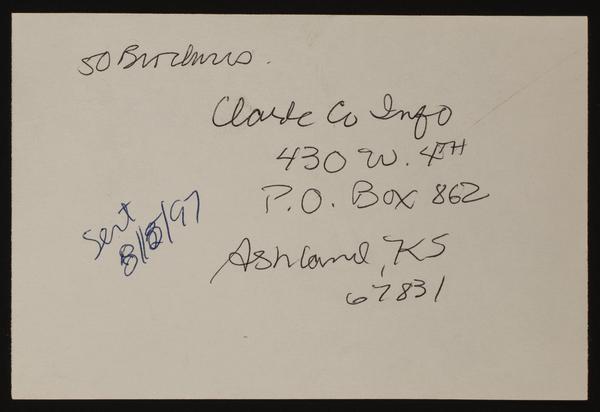 50 Brochures.
Clark Co Info
430 W. 4TH
P.O. Box 862
Ashland, KS
67831
Sent
8/8/97